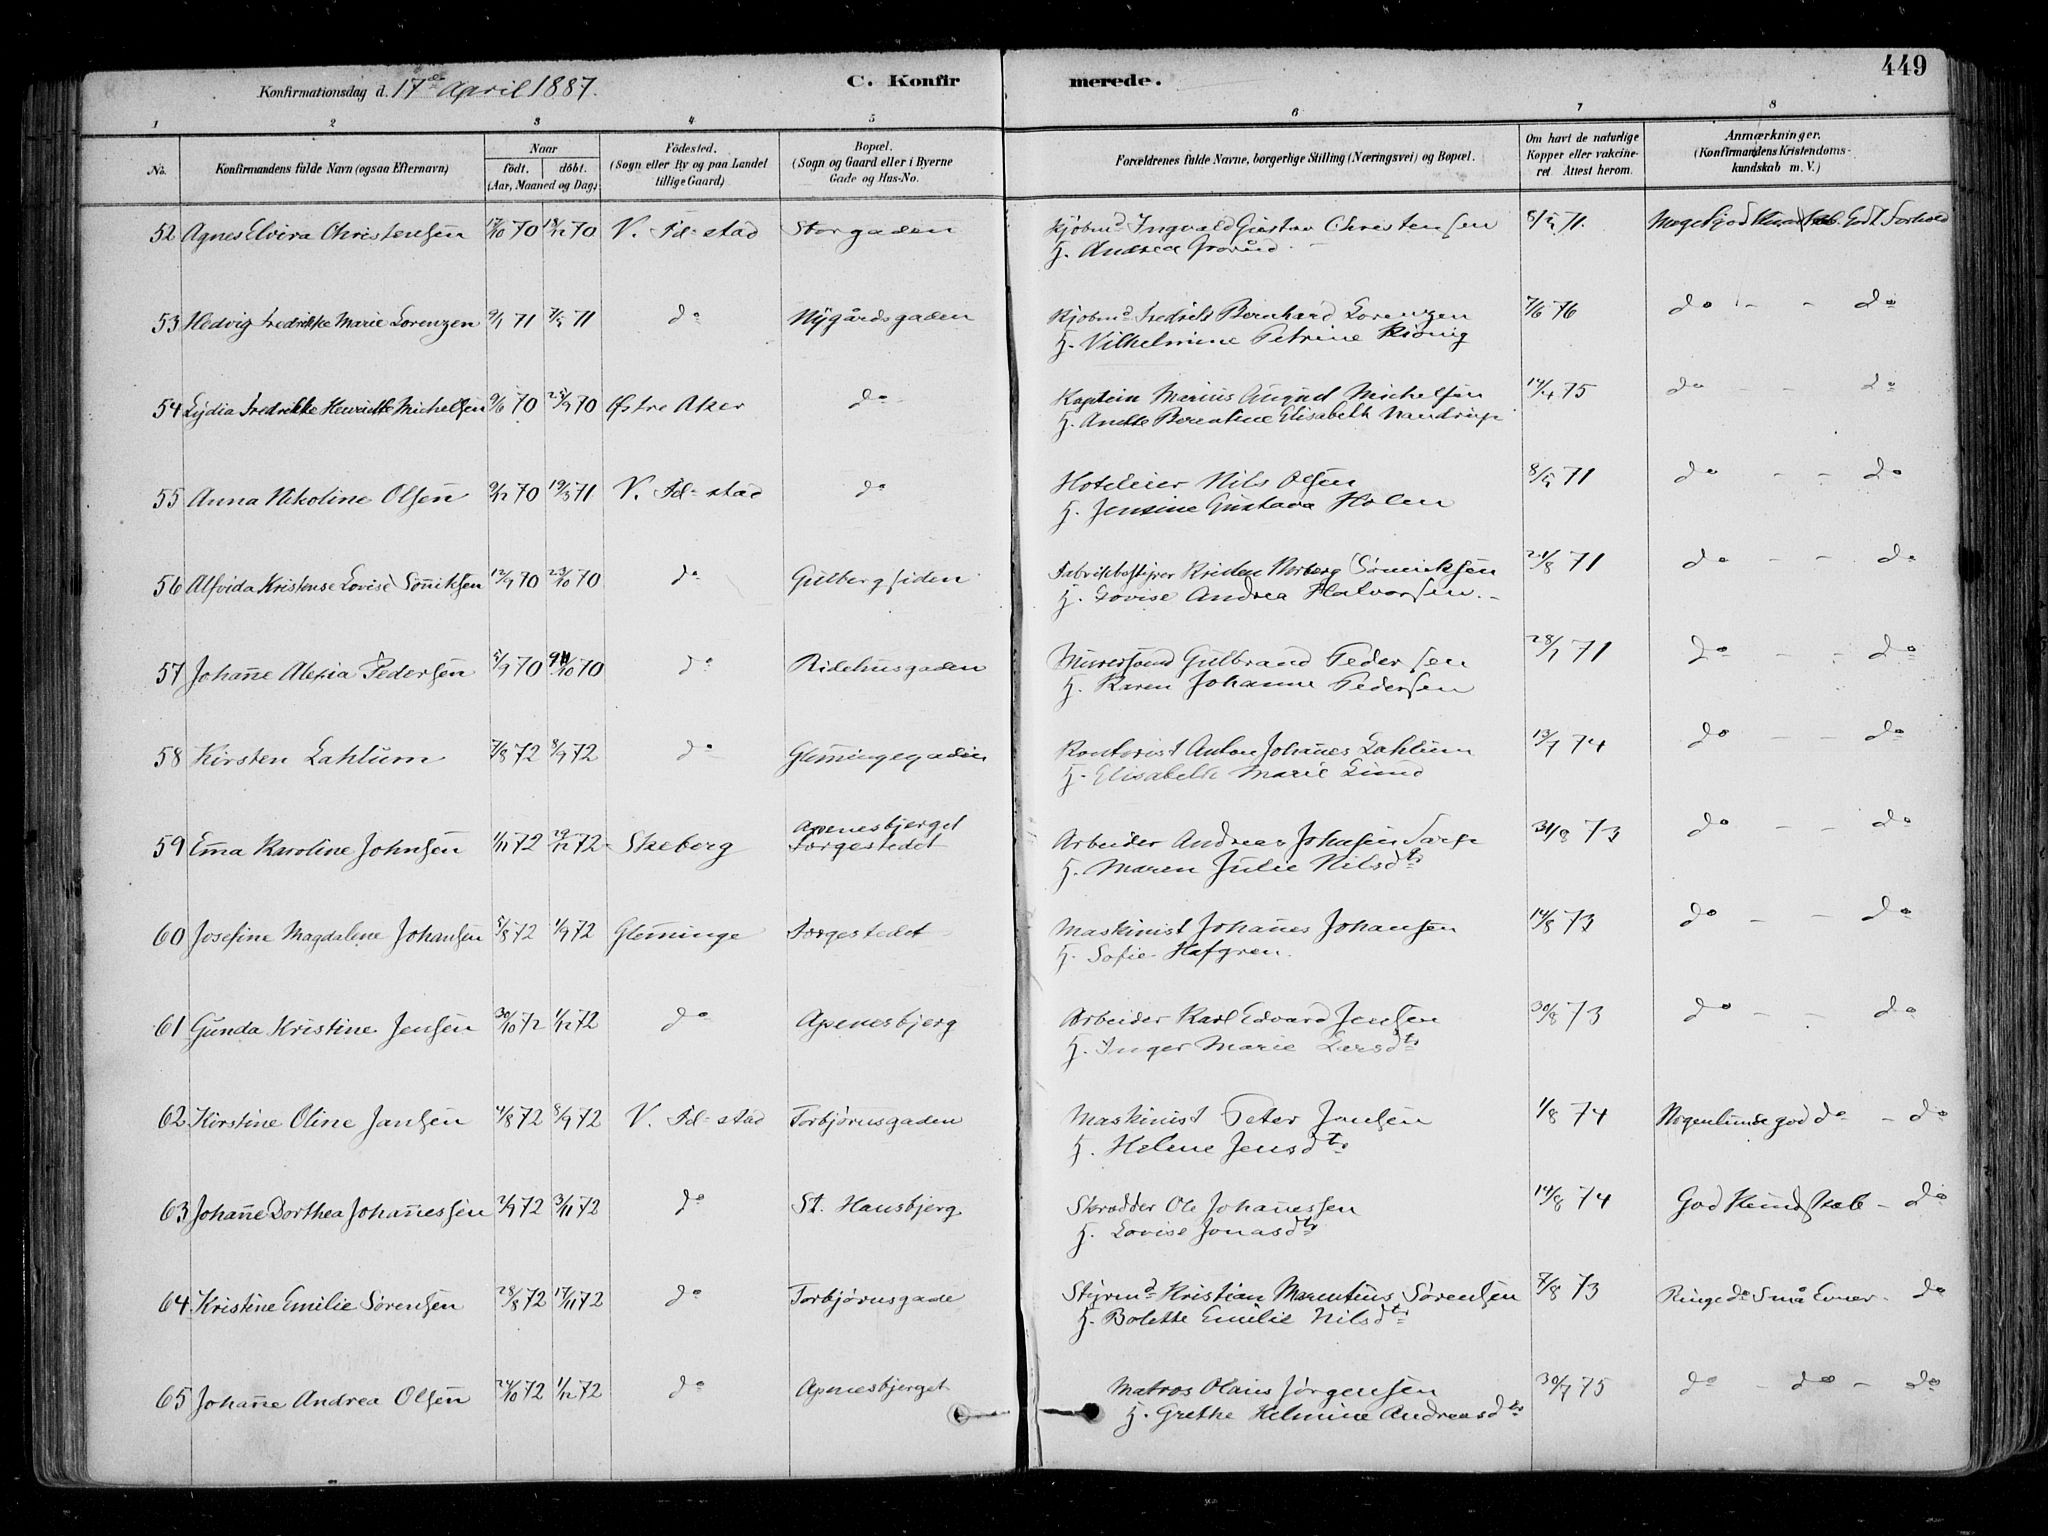 449
Konfirmationsdag d. 17de April 1887.
C. Konfirmerede.
1 2 3 4 5 6 7 8
No.
Konfirmandens fulde Navn (ogsaa Efternavn)
Naar
født. døbt.
(Aar, Maaned og Dag)
Fødested.
(Sogn eller By og paa Landet
tillige Gaard)
Bopæl.
(Sogn og Gaard eller i Byerne
Gade og Hus-No.
Forældrenes fulde Navne, borgerlige Stilling (Næringsvei) og Bopæl.
Om havt de naturlige
Kopper eller vakcine-
ret. Attest herom.
Anmærkninger.
(Konfirmandens Kristendoms-
kundskab m. V.)
52 Agnes Elvira Christensen 17/10 70 18/12 70 V. Fd-stad Storgaden Kjøbmd Ingvald Gustav Christensen 8/5 71. Meget god Kundskab Godt Forhold
H. Andrea
53 Hedvig Fredrikke Marie Lorenzen 9/1 71 7/5 71 do Nygårdsgaden Kjøbmd Fredrik Bernhard Lorenzen 7/6 76 do - - do
H. Vilhelmine Petrine
54 Lydia Fredrikke Henriette Michelsen 9/6 70 25/9 70 Østre Aker do Kaptein Marius August Michelsen 14/4 75 do - - do
H. Anette Berentine Elisabeth Vandrup
55 Anna Nikoline Olsen 9/12 70 19/3 71 V. Fd-stad do Hoteleier Nils Olsen 8/5 71 do - - do
H. Jensine Gustava Holen
56 Alfvida Kristense Lovise Sønniksen 12/9 70 23/10 70 do Gulbergsiden Fabrikbestyrer Kristen Norberg Sønniksen 21/8 71 do - - do
H. Lovise Andrea Halvorsen
57 Johanne Alexia Pedersen 5/9 70 /10 70 do Ridehusgaden Murersvend Gulbrand Pedersen 28/7 71 do - - do
H. Karen Johanne Pedersen
58 Kirsten Lahlum 7/8 72 8/9 72 do Glemmingegaden Kontorist Anton Johannes Lahlum 13/7 74 do - - do
H. Elisabeth Marie Lund
59 Emma Karoline Johnsen 1/11 72 29/12 72 Skeberg Apenesbjerget Torgestedet Arbeider Andreas Johnsen 31/8 73 do - - do
H. Maren Julie Nilsdtr
60 Josefine Magdalene Johansen 5/8 72 1/9 72 Glemminge Torgestedet Maskinist Johannes Johansen 14/8 73 do - - do
H. Sofie Hafgren.
61 Gunda Kristine Jensen 30/10 72 1/12 72 do Apenesbjerg Arbeider Karl Edvard Jensen 30/8 73 do - - do
H. Inger Marie Larsdtr
62 Kirstine Oline Jansen 4/8 72 8/9 72 V. Fd-stad Torbjørnsgaden Maskinist Peter Jansen 1/8 74 Nogenlunde god do - do
H. Helene Jensdtr
63 Johanne Dorthea Johannessen 2/9 72 3/11 72 do St. Hansbjerg Skrædder Ole Johannessen 14/8 74 God Kundskab - do
H. Lovise Jonasdtr
64 Kristine Emilie Sørensen 28/8 72 17/11 72 do Torbjørnsgade Styrmd Kristian Marentius Sørensen 7/8 73 Ringe do Små Evner. do
H. Bolette Emilie Nilsdtr
65 Johanne Andrea Olsen 24/10 72 1/12 72 do Apenesbjerget Matros Olaus Jørgensen 30/7 75 do - do - do
H. Grethe Helmine Andreasdtr